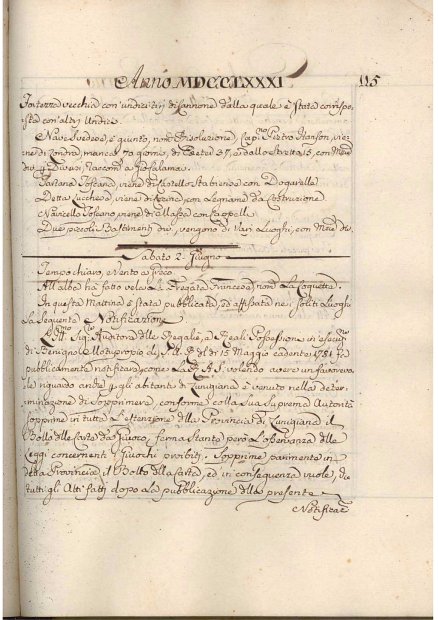 Anno MDCCLXXXI 115
Fortezza vecchia con undici tiri di cannone dalla quale è stata corrispo-
sta con altri Undici.
Nave Svedese, è giunto, nom. Risoluzione, Cap. Pietro Hanson, vie-
ne di Londra, manca 70 giorni, di 37, e dallo Stretto 15, con
div. a
Tartana Toscana viene di Castello Stabiense con Dogarelle
Detta Lucchese, viene di con Legname da Costruzione
Navicello Toscano viene di con Cappelli
Due piccoli Bastimenti div. vengono di Vari Luoghi, con div.
Sabato 2. Giugno
Tempo chiaro, e Vento a Greco
All'alba ha fatto vela la Fregata Francese nom. La Coquette.
In questa Mattina è stata pubblicata, ed affissata nei soliti Luoghi
La Seguente Notificazione
L'Ill. Sig. Auditore delle Regalie, e Reali Possessioni in esecuz.
di Benigno Motuproprio di S.A.R. del dì 15 Maggio cadente 1781. fa
pubblicamente notificare, come La R.A.S. volendo avere un favorevo-
le riguardo anche p. gli abitanti di Lunigiana è venuto nella deter-
minazione di Sopprimere, conforme colla Sua Suprema Autorità
Sopprime in tutta L'estenzione della Provincia di Lunigiana il
Bollo delle Carte da Giuoco, ferma stante però L'osservanza delle
Leggi concernenti Giuochi proibiti. Sopprime parimente in
detta Provincia il Bollo della Carta, ed in conseguenza vuole, che
tutti gli Atti fatti dopo la pubblicazione della presente
Notificaz.